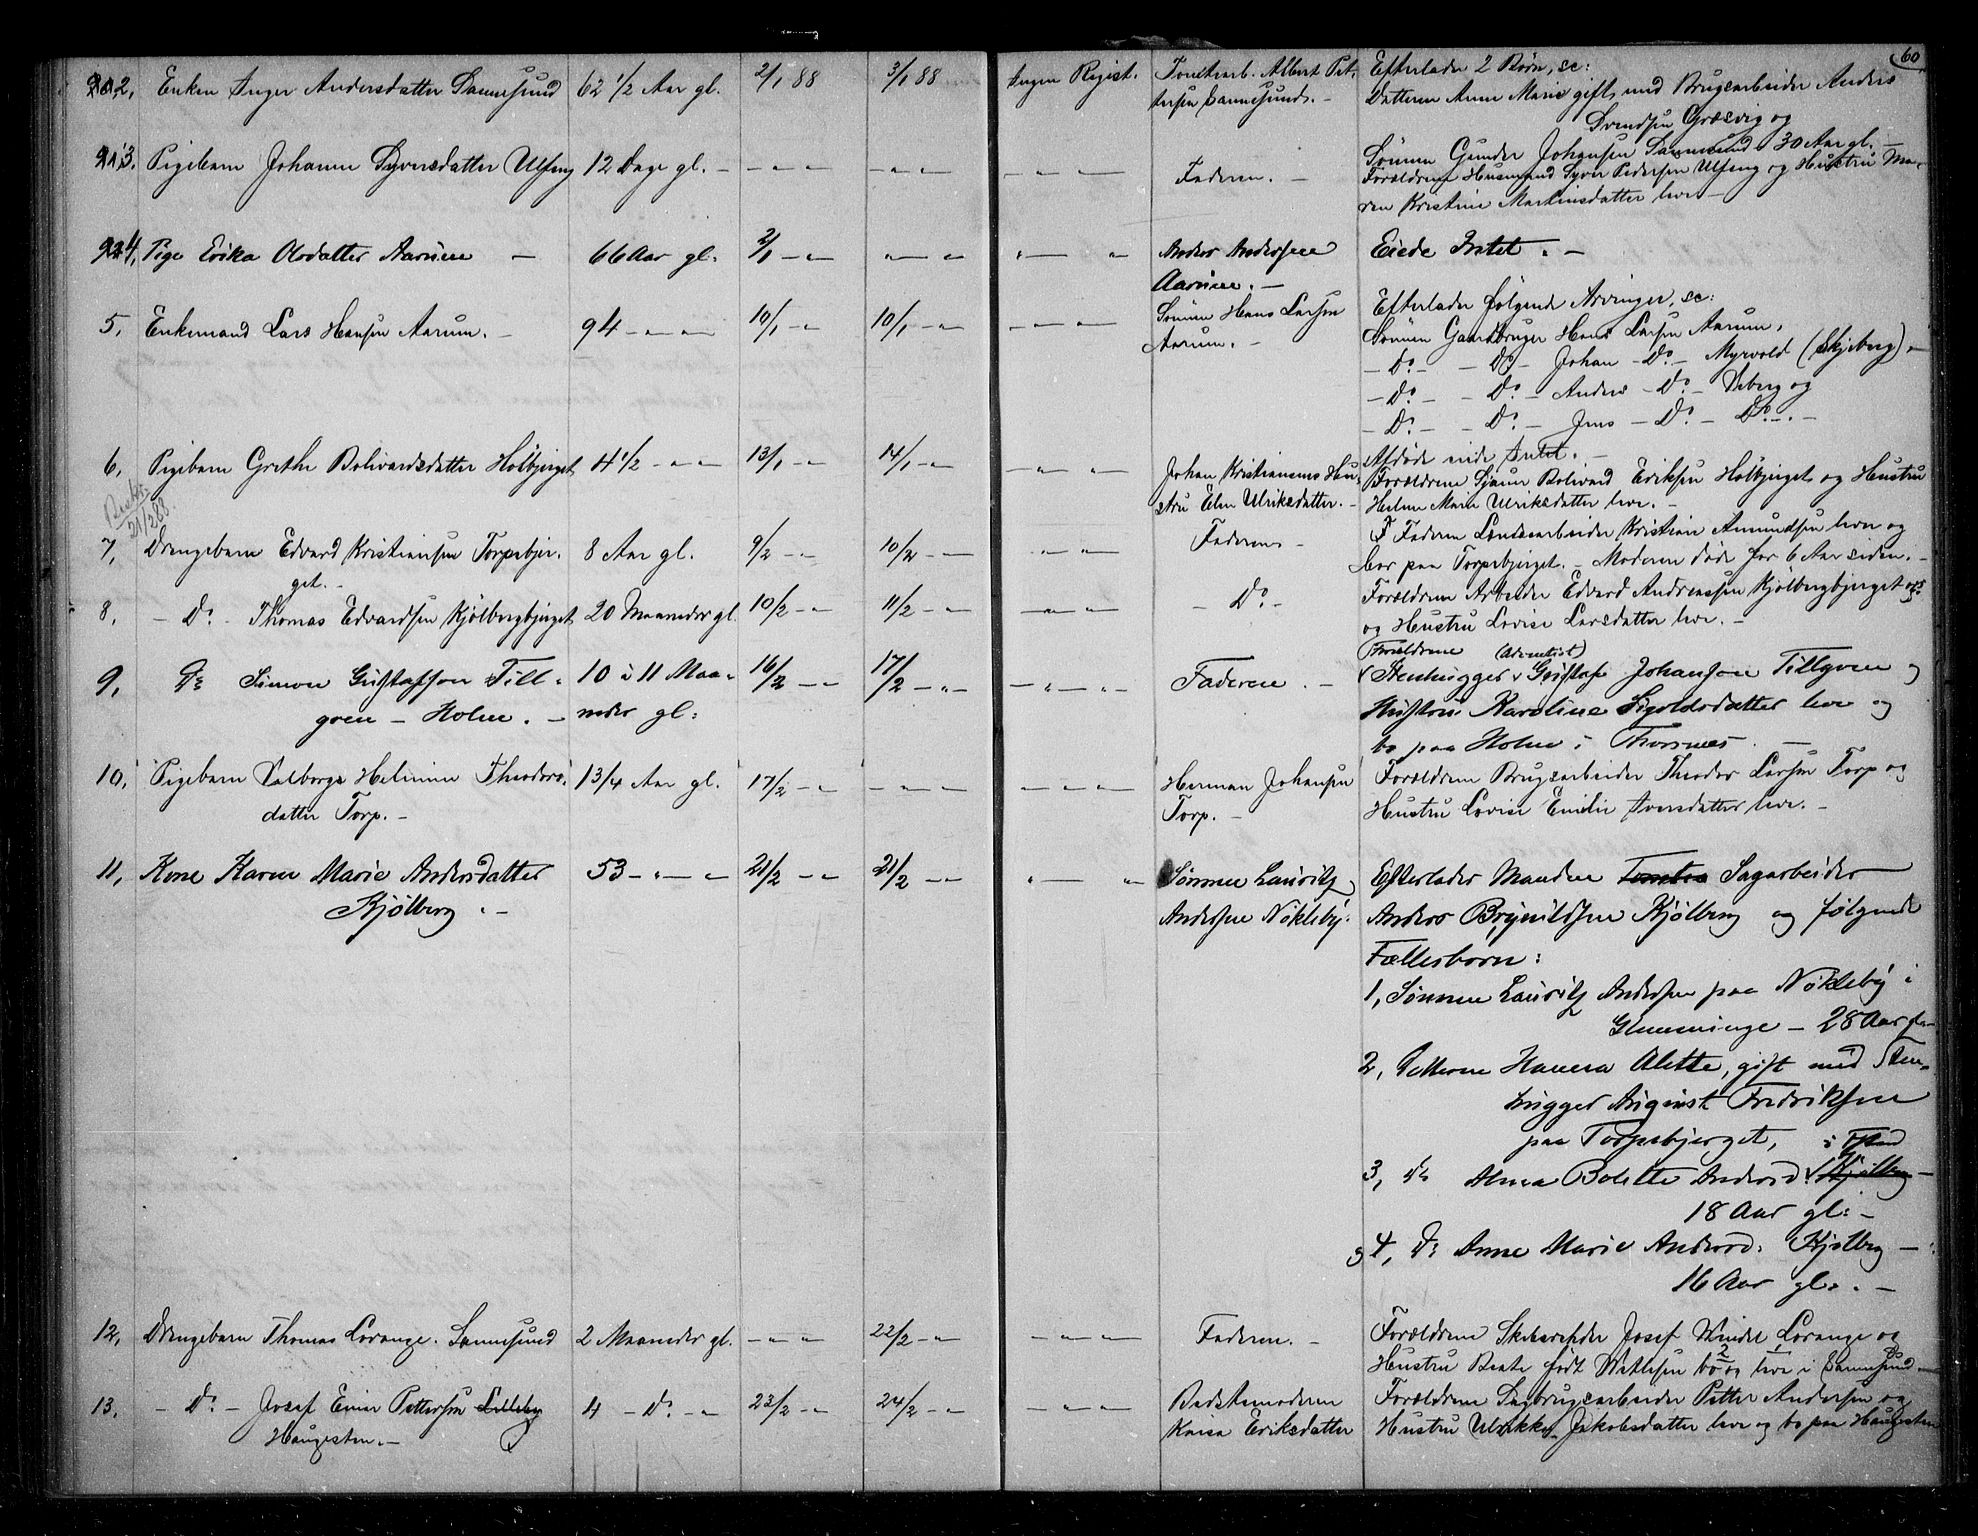 60
2, Enken Inger Andersdatter Sannesund 62 1/2 Aar gl. 2/1 88 3/1 88 Ingen Regist. Tomtearb. Albert Pet- Efterlader 2 Børn, sc:
tersen Sannesund. - Datteren Anne Marie gift med Brugsarbeider Anders
Svendsen Græsvig og
Sønnen Gunder Johansen Sannesund 30 Aar gl. -
3. Pigebarn Johanne Syversdatter Ulfeng 12 Dage gl. - - " - - " - - " - Faderen. - Forældrene Husmand Syver Pedersen Ulfeng og Hustru Ma-
ren Kristine Martinsdatter lever -
4, Pige Erika Olsdatter Aarum - 66 Aar gl. 2/1 - " - " - " - " - " Anders Andersen Eiede Intet. -
Aarum. -
5, Enkemand Lars Hansen Aarum. - 94 - " - " 10/1 - " 10/1 - " - " - " Sønnen Hans Larsen Efterlader følgende Arvinger, sc:
Aarum. - Sønnen Gaardbruger Hans Larsen Aarum,
- Do - - Do - Johan - Do - Myrvold (Skjeberg), -
- Do - - Do - Anders - Do - Veberg og
- Do - - Do - Jens - Do - Do - . -
Afdøde eiede Intet. -
6, Pigebarn Grethe Bolivardsdatter Holbjerget 4 1/2 - " - " 13/1 - " 14/1 - " - " - " Johan Kristiansens Hu- Forældrene Gjæver Bolivard Eriksen Holbjerget og Hustru
stru Elen Ulriksdatter. - Helene Marie Ulriksdatter lever. -
21/2 88.
7, Drengebarn Edvard Kristiansen Torpebjer- 8 Aar gl. 9/2 - " 10/2 - " - " - " Faderen - Faderen Landsarbeider Kristian Amundsen lever og
get. - bor paa Torpebjerget. - Moderen døde for 6 Aar siden. -
8, - Do - Thomas Edvardsen Kjølbergbjerget 20 Maaneder gl. 10/2 - " 11/2 - " - " - " - Do - Forældrene Arbeider Edvard Andreassen Kjølbergbjerget
og Hustru Lovise Larsdatter lever. -
9, Do Simon Gustafson Till- 10 à 11 Maa- 16/2 - " 17/2 - " - " - " Faderen. - Forældrene (Adventist)
Stenhugger Gustaf Johanson Tillgren og
gren - Holm. - neder gl: Hustru Karoline Sigvoldsdatter lever og
bo paa Holm i Thorsnes. -
10, Pigebarn Valborge Helmine Theodors- 1 3/4 Aar gl. 17/2 - " - " - " - " - " Herman Johansen Forældrene Brugsarbeider Theodor Larsen Torp og
datter Torp. - Torp. - Hustru Lovise Emilie Iversdatter lever. -
11, Kone Karen Marie Andersdatter 53 - " - " 21/2 - " 21/2 - " " - " Sønnen Lauritz Efterlader Manden Tomtea Sagarbeider
Kjølberg. - Andersen Nøkleby. Anders Brynildsen Kjølberg og følgende
Fællesbørn:
1, Sønnen Lauritz Andersen paa Nøkleby i
Glemminge - 28 Aar gl. -
2, Datteren Hanna Alette, gift med Sten-
hugger August Fredriksen
paa Torpebjerget,
3, Do Alma Bolette Andersd. Kjølberg -
18 Aar gl: -
4, Do Anne Marie Andersd: Kjølberg -
16 Aar gl: . -
12, Drengebarn Thomas Lorange. Sannesund 2 Maaneder gl. - " - " 22/2 - " - " - " Faderen. - Forældrene Skibsreder Josef Windel Lorange og
Hustru Beate født Wetlesen bo og lever i Sannesund. -
13. - Do - Josef Einar Pettersen Lilleby 4 - Do - " 23/2 - " 24/2 - " - " - " Bedstemoderen Forældrene Sagbrugsarbeider Petter Andersen og
Haugesten. - Kaisa Eriksdatter Hustru Ulrikke Jakobsdatter lever og bo paa Haugesten